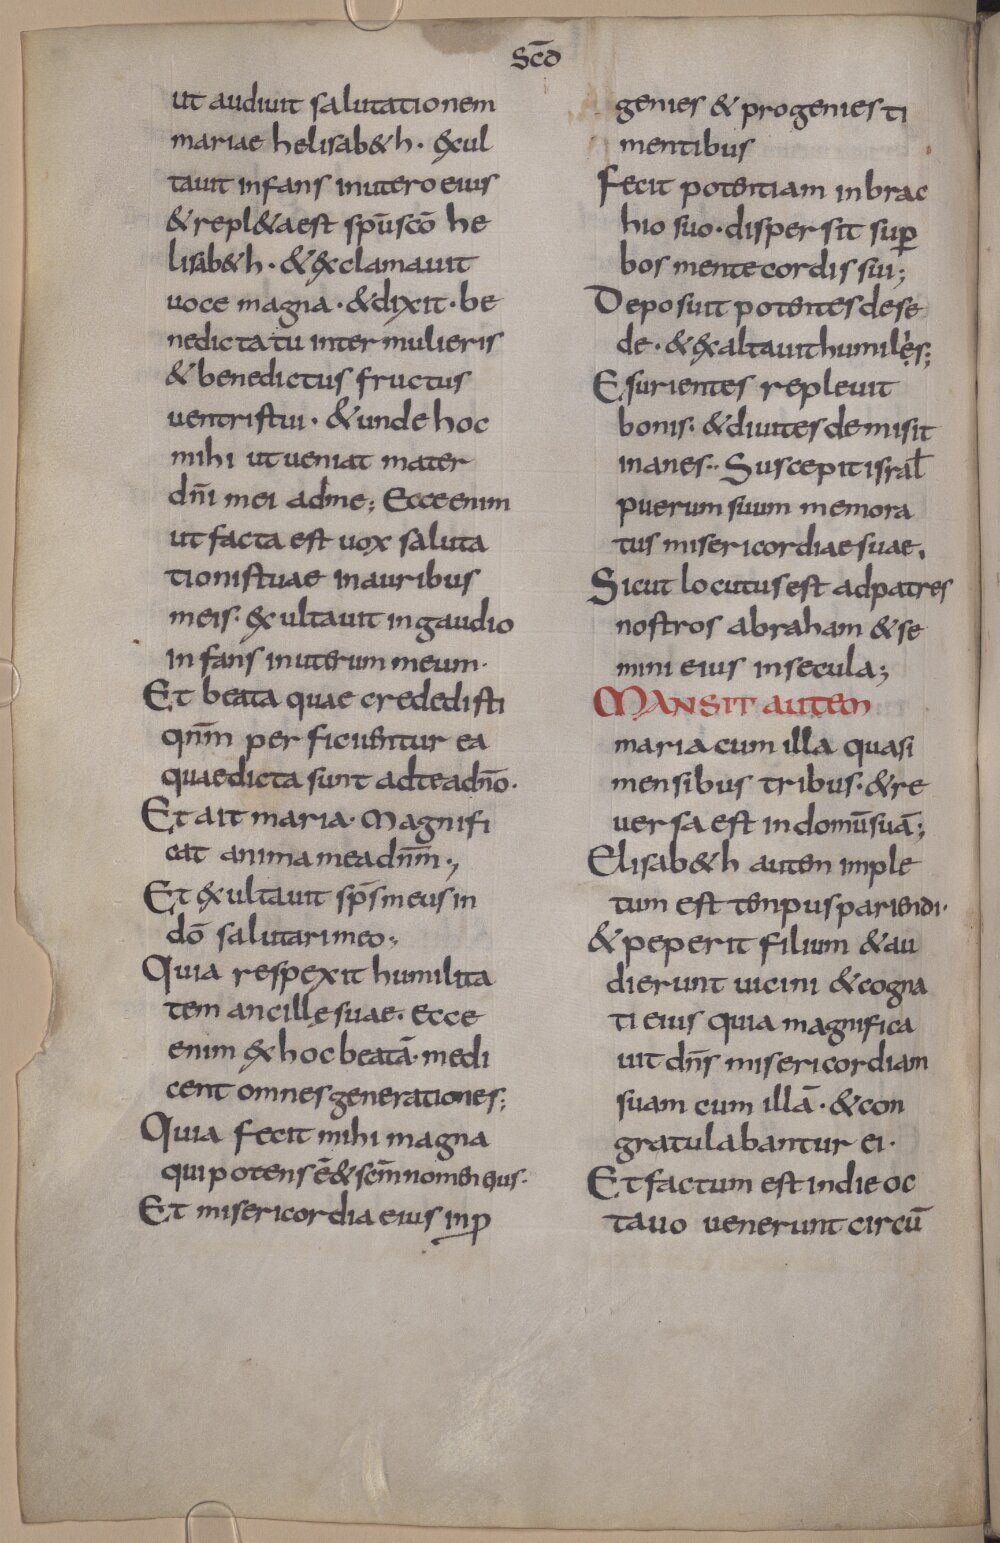 scd̄
ut audiuit salutationem
mariae helisab&h · exul
tauit infans inutero eius
& repl&aest sp̄usc̄o he
lisab&h · & exclamauit
uoce magna · & dixit · be
nedicta tu inter mulieris
& benedictus fructus
uentris tui · & unde hoc
mihi ut ueniat mater
dn̄i mei adme ; Ecce enim
ut facta est uox saluta
tionis tuae inauribus
meis · exultauit in gaudio
infans inuterum meum ·
Et beata quae crededisti
qn̄m perficientur ea
quae dicta sunt adte adn̄o ·
Et ait maria · Magnifi
cat anima mea dn̄m ·,
Et exultauit sp̄s meus in
dō salutari meo ·,
Quia respexit humilita
tem ancillę suae · Ecce
enim ex hoc beatā · medi
cent omnes generationes ;
Quia fecit mihi magna
qui potens ē & scm̄ nomen eius ·
Et misericordia eius inp
genies & progenies ti
mentibus
Fecit potentiam in brac
hio suo · dispersit sup
bos mente cordis sui ;
Deposuit potentes de se
de · & exaltauit humiles ;
Esurientes repleuit
bonis · & diuites demisit
inanes ·· Suscepit isral̄
puerum suum memora
tus misericordiae suae ,
Sicut locutus est ad patres
nostros abraham & se
mini eius in secula ;
MANSIT autem
maria cum illa quasi
mensibus tribus · & re
uersa est in domū suā ;
Elisab&h autem imple
tum est tenpus pariendi ·
& peperit filium & au
dierunt uicini & cogna
ti eius quia magnifica
uit dn̄s misericordiam
suam cum illā · & con
gratulabantur ei ·
Et factum est in die oc
tauo uenerunt circū